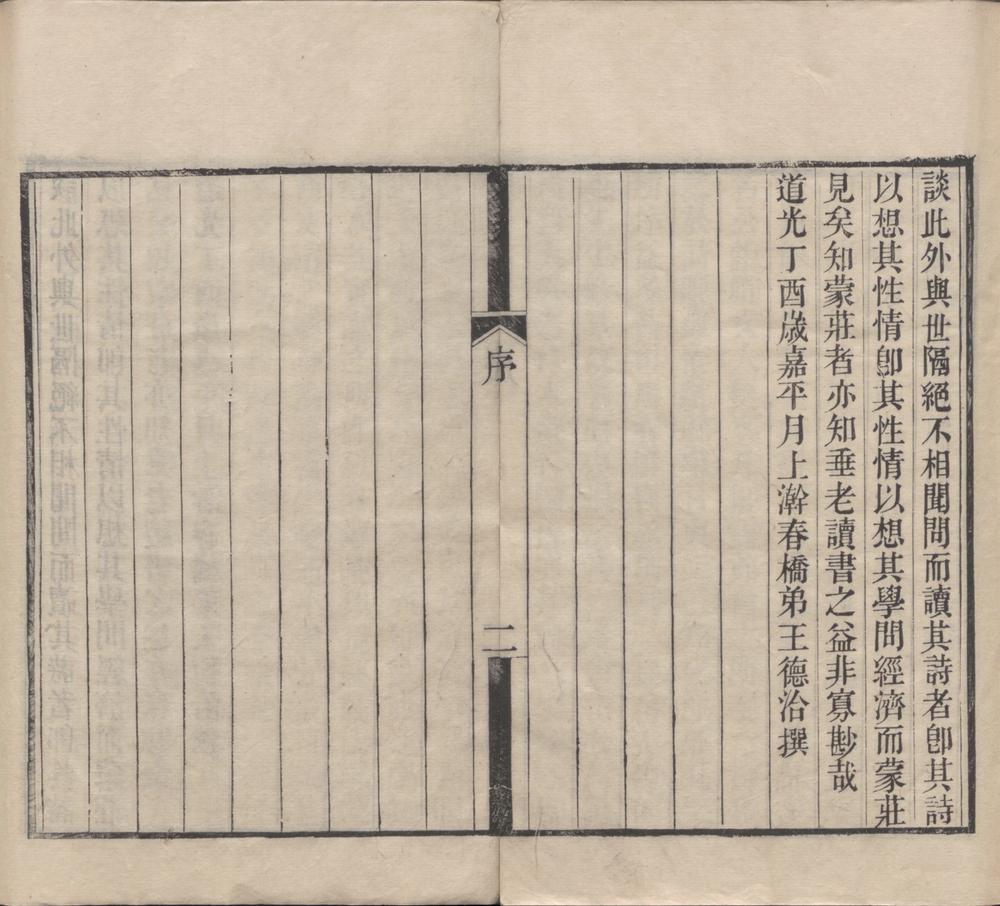 談此外與世隔絕不相聞問而讀其詩者卽其詩
以想其性情卽其性情以想其學問經濟而蒙莊
見矣知蒙莊者亦知垂老讀書之益非寡尠哉
道光丁酉歲嘉平月上澣春橋弟王德治撰
序
二